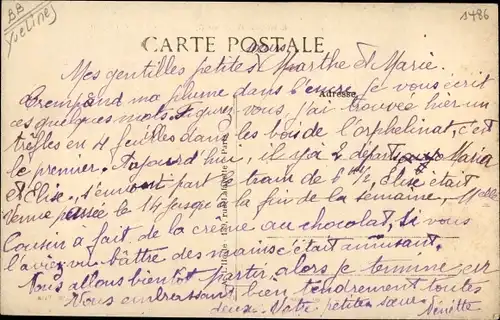 BB
Yvelines
1486
CARTE POSTALE
Adresse
Mes gentilles petites Marthe et Marie.
trempant ma plume dans l'encre, je vous écrit
ces quelques mots. Figurez-vous, j'ai trouvée hier un
trèfles en 4 feuilles dans les bois de l'orphelinat, c'est
le premier. Aujourd hui, il y a 2 départ Maria
et Elise, s'en vont par train de Elise était
venue passée le 14 jusqu'a la fin de la semaine, Melle
Cousin a fait de la crème au chocolat, si vous
l'aviez vu bâttre des mains c'était amusant.
Nous allons bientôt partir, alors je termine en
Vous embrassant bien tendrement toutes
deux. Votre petite sœur
Ninette